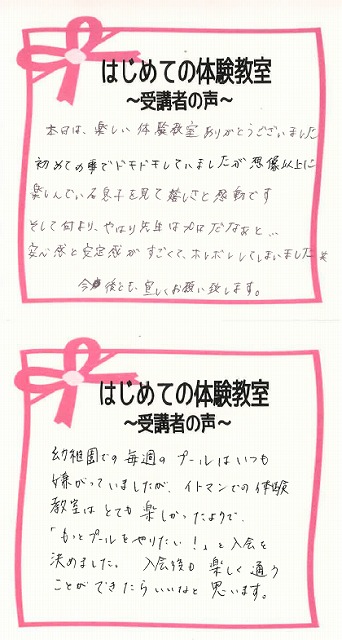 はじめての体験教室
~受講者の声~
本日は、楽しい体験教室ありがとうございました
初めての事でドキドキしていましたが想像以上に
楽しんでいる息子を見て嬉しさと感動です
そして何より、やはり先生はプロだなぁと…
安心感と安定感がすごくて、ホレボレしてしまいました笑
今後とも宜しくお願い致します。
はじめての体験教室
~受講者の声~
幼稚園での毎週のプールはいつも
嫌がっていましたが、イトマンでの体験
教室はとても楽しかったようで、
「もっとプールをやりたい!」と入会を
決めました。入会後も楽しく通う
ことができたらいいなと思います。